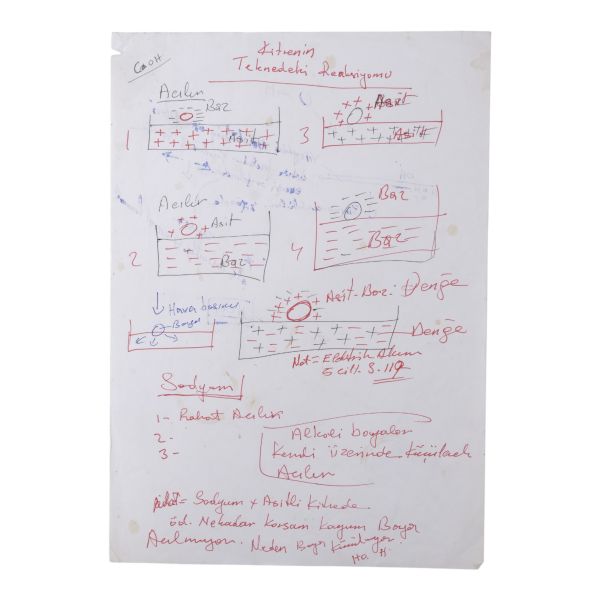 CaOH
Kitrenin
Teknedeki Reaksiyonu
Açılır
Baz
1
Asit
Asit
3
Asit
Açılır
Asit
2
Baz
Baz
4
Baz
Hava basıncı
Boya
Asit-Baz: Denge
Denge
Not= Elektrik Akım
5 cilt. S. 119
Sodyum
1- Rahat Açılır
2-
3-
Alkoli boyalar
Kendi üzerinde Küçülerek
Açılır
= Sodyum + Asitli Kitrede
öd. Nekadar Korsam Koyum Boya
Açılmıyor. Neden Boya Küçülüyor.